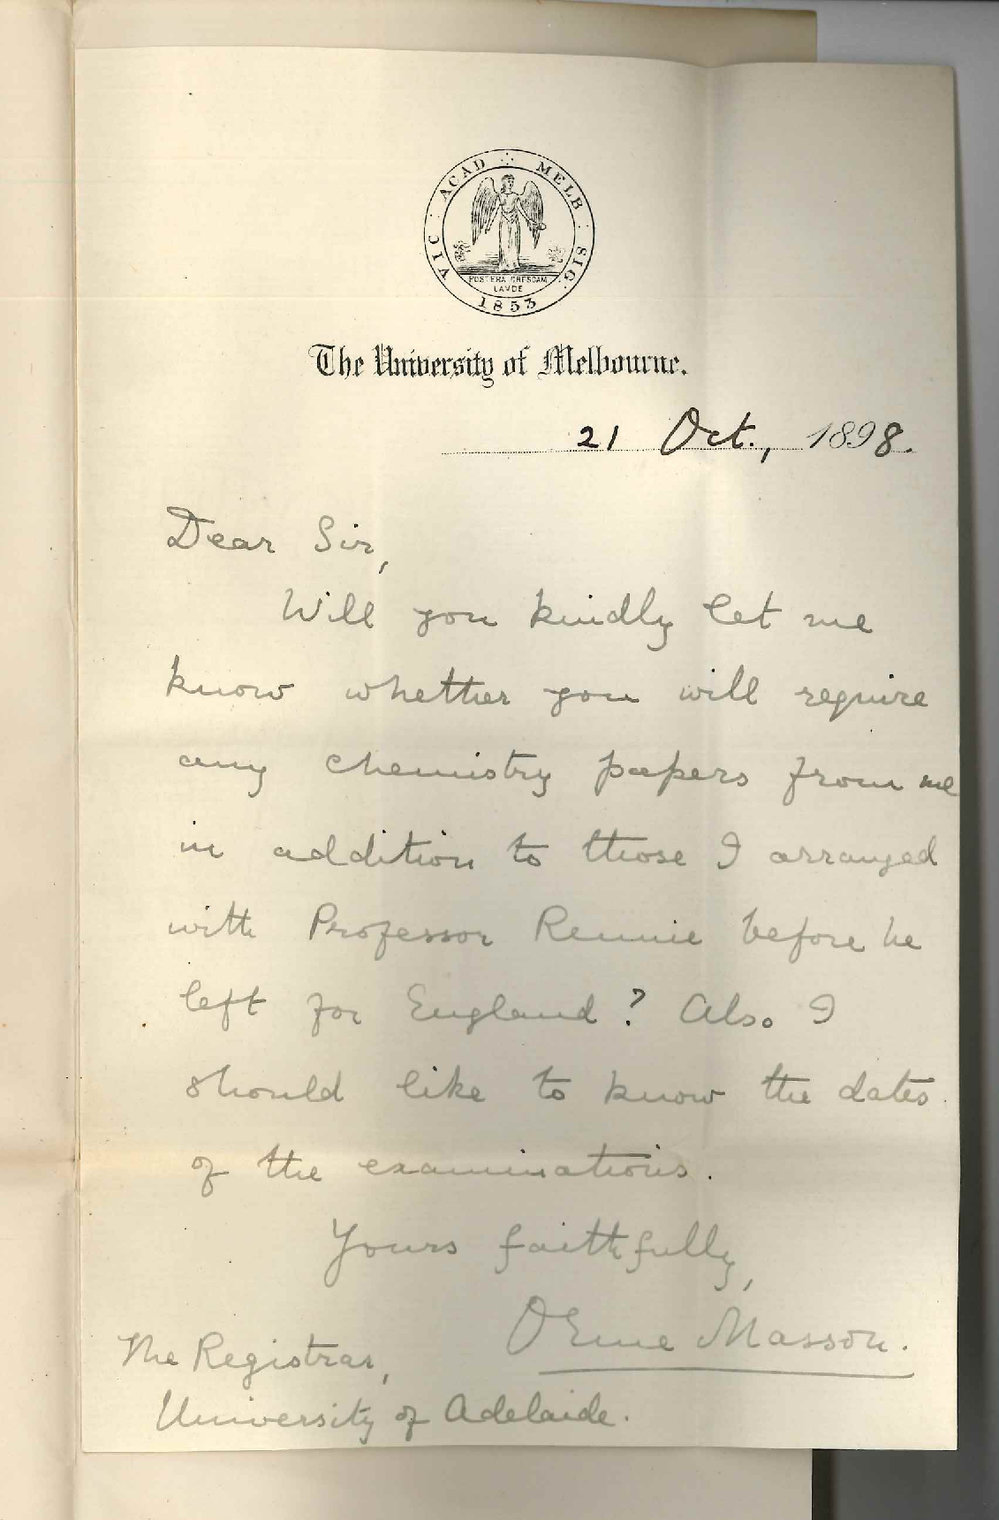 VIC : ACAD ∴ MELB : SIG.
POSTERA CRESCAM
LAVDE
1853
The University of Melbourne.
21 Oct., 1898.
Dear Sir,
Will you kindly let me
know whether you will require
any chemistry papers from me
in addition to those I arranged
with Professor Rennie before he
left for England? Also I
should like to know the dates
of the examinations.
Yours faithfully,
Orme Masson.
The Registrar,
University of Adelaide.